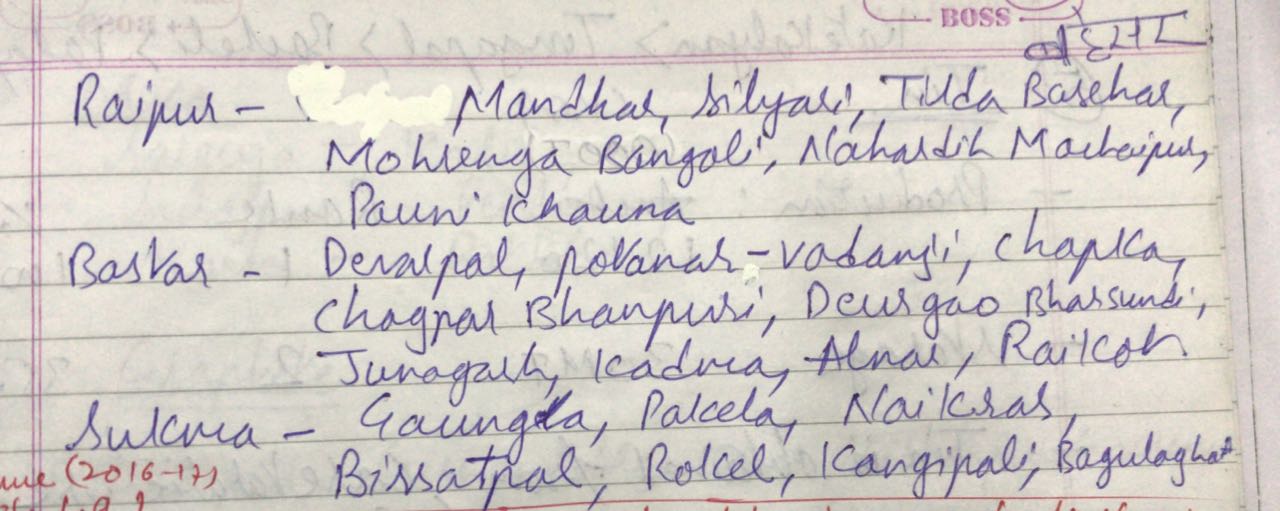 BOSS
Raipur - Mandhar, Silyari, Tilda Basehar,
Mohrenga Bangoli, Nahardih Machaipur,
Pauni Khauna
Bastar - Devalpal, potanar-vadanji, Chapka,
Chagpar Bhanpuri, Deurgao Bharsundi,
Junagarh, Kadma, Alnar, Raikot
Sukma - Gaungla, Pakela, Naikras,
Bissatpal, Rokel, Kangipali, Bagulaghat
(2016-17)